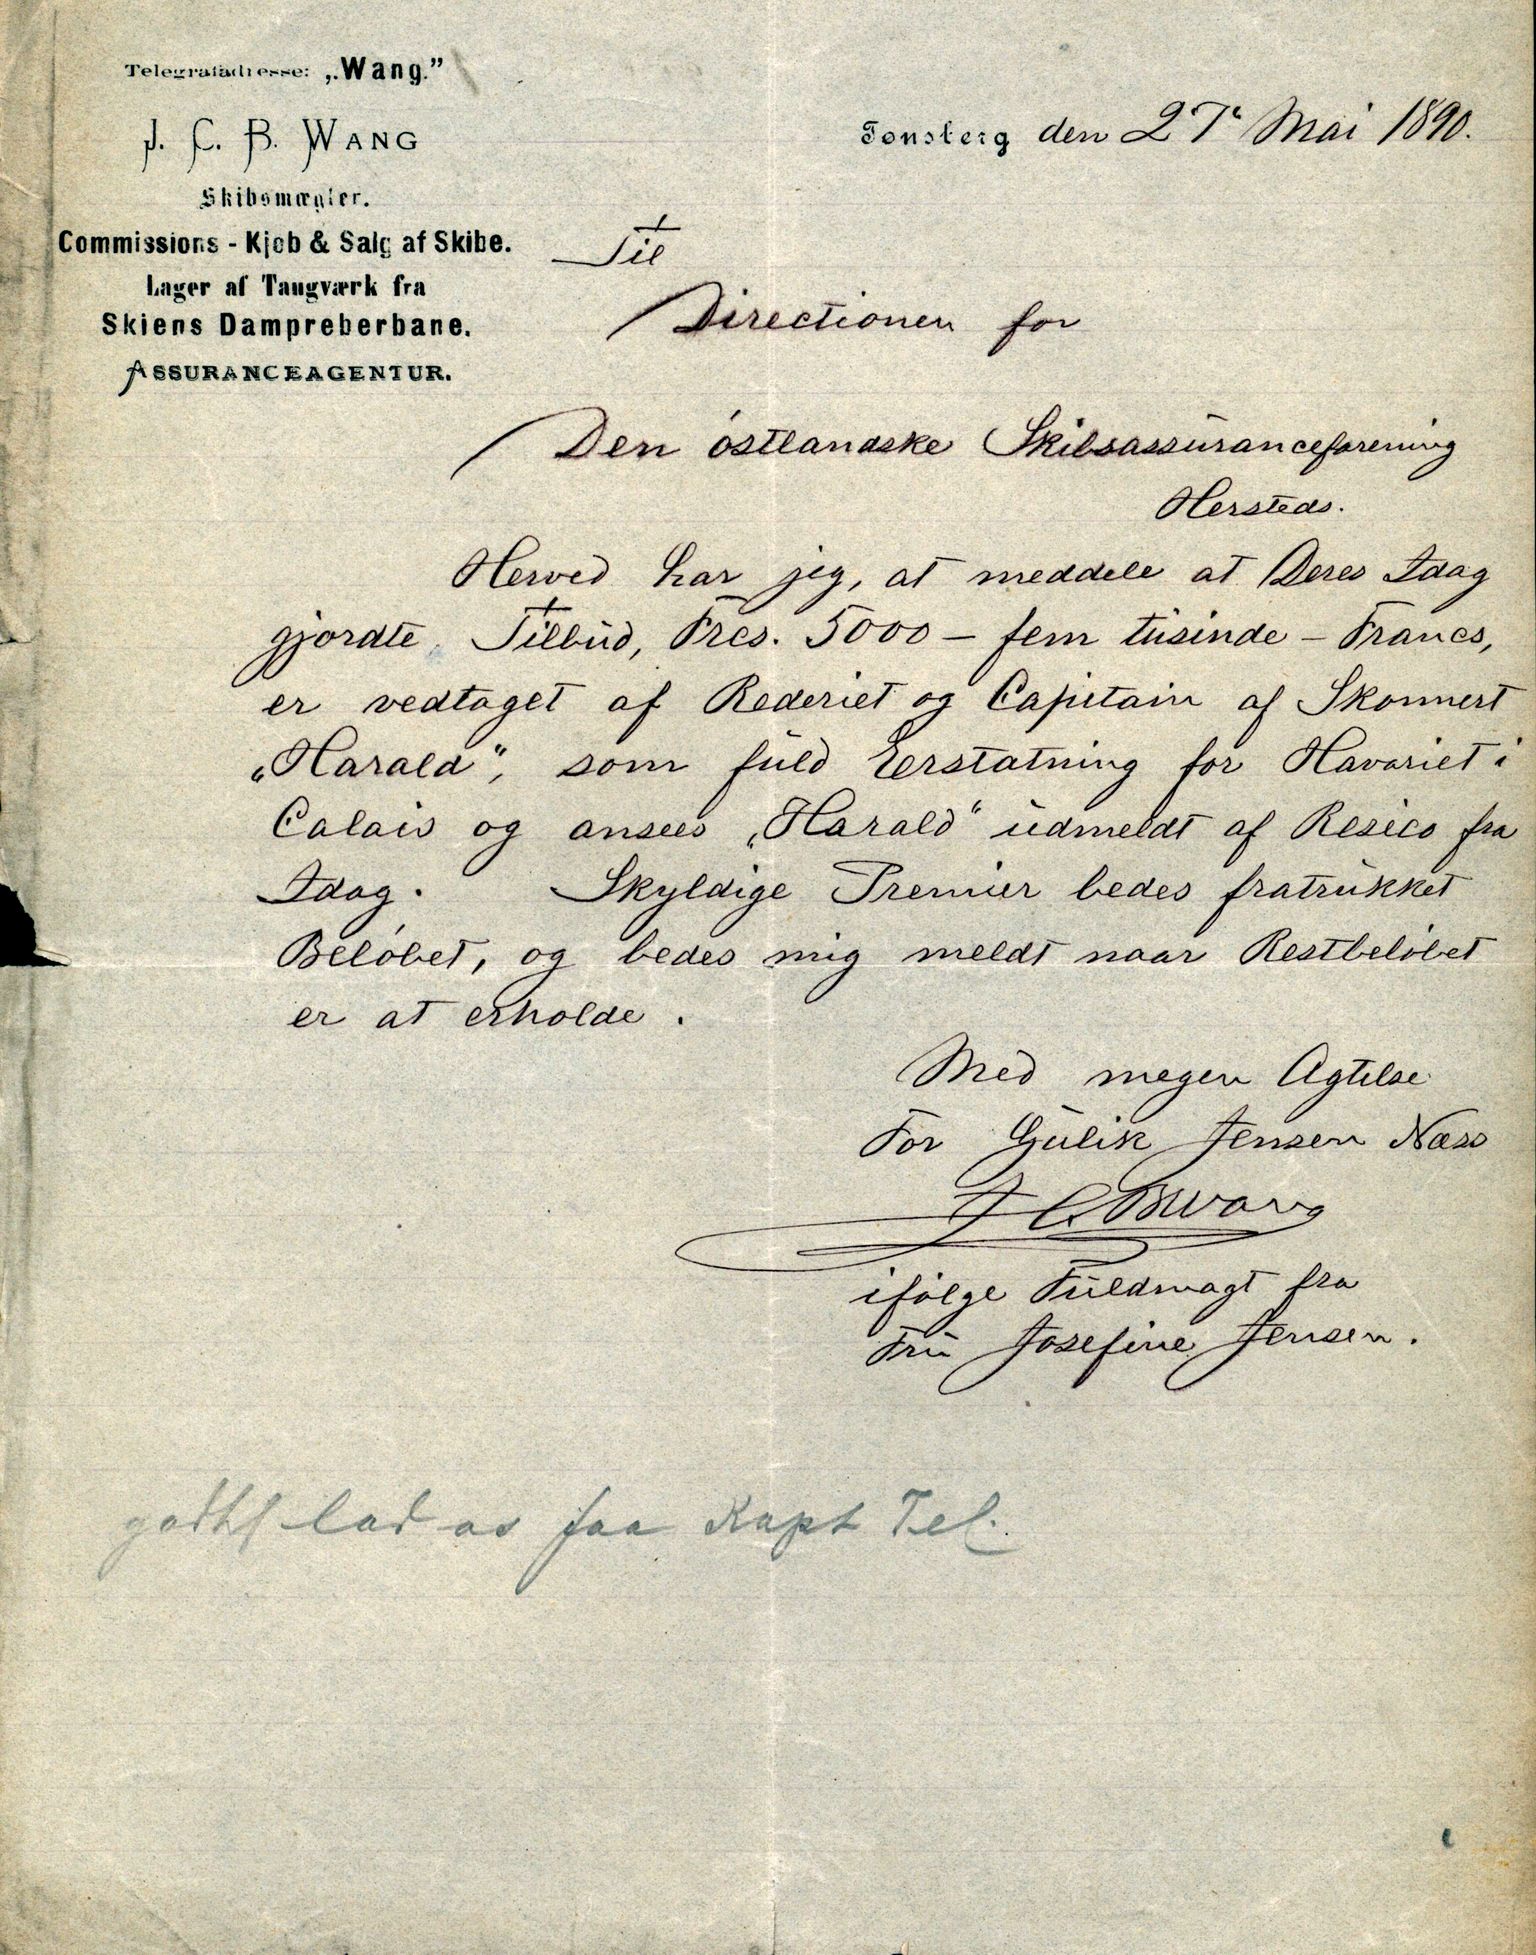 Telegrafadresse: „Wang."
J. C. B. WANG
Skibsmægler.
Commissions - Kjøb & Salg af Skibe.
Lager af Taugværk fra
Skiens Dampreberbane.
ASSURANCEAGENTUR.
Tønsberg den 27' Mai 1890.
Til
Directionen for
Den østlandske Skibsassuranceforening
Hersteds.
Herved har jeg, at meddele at Deres Idag
gjordte Tilbud, Frcs. 5000 – fem tusinde – Francs,
er vedtaget af Rederiet og Capitain af Skonnert
„Harald", som fuld Eerstatning for Havariet i
Calais og ansees „Harald" udmeldt af Resico fra
Idag. Skyldige Premier bedes fratrukket
Beløbet, og bedes mig meldt naar Restbeløbet
er at erholde.
Med megen Agtelse
For Gulik Jensen Næss
J C B Wang
ifølge Fuldmagt fra
Fru Josefine Jensen.
lad os faa Kapt Tel.